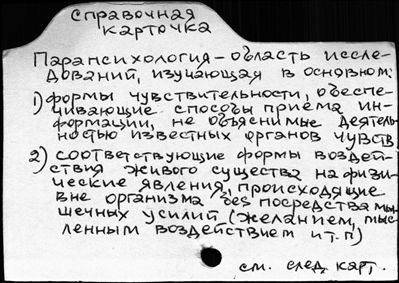 справочная
карточка
Парапсихология – область иссле-
дований, изучающая в основном:
1) формы чувствительности, обеспе-
чивающие способы приема ин-
формации, не объяснимые деятель-
ностью известных органов чувств
2) соответствующие формы воздей-
ствия живого существа на физи-
ческие явления, происходящие
вне организма без посредства мы-
шечных усилий (желанием, мыс-
ленным воздействием и т.п)
см. след. карт.